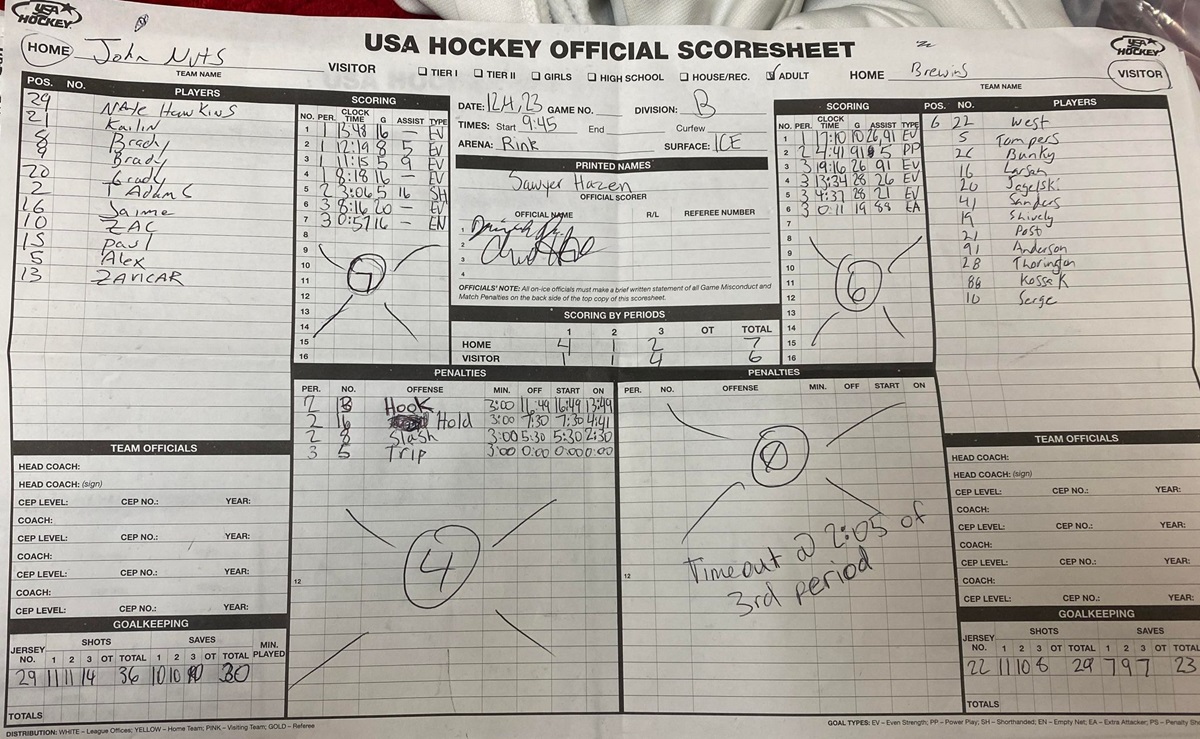 USA HOCKEY
USA HOCKEY
HOME John Nuts
TEAM NAME
VISITOR
USA HOCKEY OFFICIAL SCORESHEET
TIER I TIER II GIRLS HIGH SCHOOL HOUSE/REC. ADULT
HOME Brewins
TEAM NAME
VISITOR
POS. NO. PLAYERS
29 Nate Hawkins
21 Kailin
8 Brady
9 Brady
20 Grady
2 T Adams
16 Jaime
10 ZAC
15 Paul
5 Alex
13 ZAVICAR
SCORING
NO. PER. CLOCK TIME G ASSIST TYPE
1 1 13:48 16 — EV
2 1 12:19 8 5 EV
3 1 11:15 5 9 EV
4 1 8:18 16 — EV
5 2 3:06 5 16 SH
6 3 8:16 20 — EV
7 3 0:57 16 — EN
8
9
10
11
12
13
14
15
16
7
DATE: GAME NO. DIVISION: B
TIMES: Start 9:45 End Curfew
ARENA: Rink SURFACE: ICE
PRINTED NAMES
Sawyer Hazen
OFFICIAL SCORER
OFFICIAL NAME R/L REFEREE NUMBER
1
2
3
4
OFFICIALS' NOTE: All on-ice officials must make a brief written statement of all Game Misconduct and
Match Penalties on the back side of the top copy of this scoresheet.
SCORING BY PERIODS
1 2 3 OT TOTAL
HOME 4 1 2 7
VISITOR 1 1 4 6
SCORING
NO. PER. CLOCK TIME G ASSIST TYPE
1 1 7:10 10 26, 91 EV
2 2 4:41 91 5 PP
3 3 19:16 26 91 EV
4 3 13:34 28 26 EV
5 3 4:37 28 21 EV
6 3 0:11 19 88 EA
7
8
9
10
11
12
13
14
15
16
6
POS. NO. PLAYERS
G 22 West
5 Tompers
26 Bunky
16 Larsen
20 Jagelski
41 Sanders
19 Shively
21 Post
91 Anderson
28 Thorington
88 Kossek
10 Serge
PENALTIES
PER. NO. OFFENSE MIN. OFF START ON
2 13 Hook 3:00 16:49 16:49 13:49
2 16 Hold 3:00 7:30 7:30 4:41
2 8 Slash 3:00 5:30 5:30 2:30
3 5 Trip 3:00 0:00 0:00 0:00
12
4
PENALTIES
PER. NO. OFFENSE MIN. OFF START ON
0
Timeout @ 2:05 of
3rd period
12
TEAM OFFICIALS
HEAD COACH:
HEAD COACH: (sign)
CEP LEVEL: CEP NO.: YEAR:
COACH:
CEP LEVEL: CEP NO.: YEAR:
COACH:
CEP LEVEL: CEP NO.: YEAR:
COACH:
CEP LEVEL: CEP NO.: YEAR:
GOALKEEPING
JERSEY NO. SHOTS 1 2 3 OT TOTAL SAVES 1 2 3 OT TOTAL MIN. PLAYED
29 11 11 14 36 10 10 30
TOTALS
TEAM OFFICIALS
HEAD COACH:
HEAD COACH: (sign)
CEP LEVEL: CEP NO.: YEAR:
COACH:
CEP LEVEL: CEP NO.: YEAR:
COACH:
CEP LEVEL: CEP NO.: YEAR:
COACH:
CEP LEVEL: CEP NO.: YEAR:
GOALKEEPING
JERSEY NO. SHOTS 1 2 3 OT TOTAL SAVES 1 2 3 OT TOTAL
22 11 10 8 29 7 9 7 23
TOTALS
DISTRIBUTION: WHITE – League Offices; YELLOW – Home Team; PINK – Visiting Team; GOLD – Referee
GOAL TYPES: EV – Even Strength; PP – Power Play; SH – Shorthanded; EN – Empty Net; EA – Extra Attacker; PS – Penalty